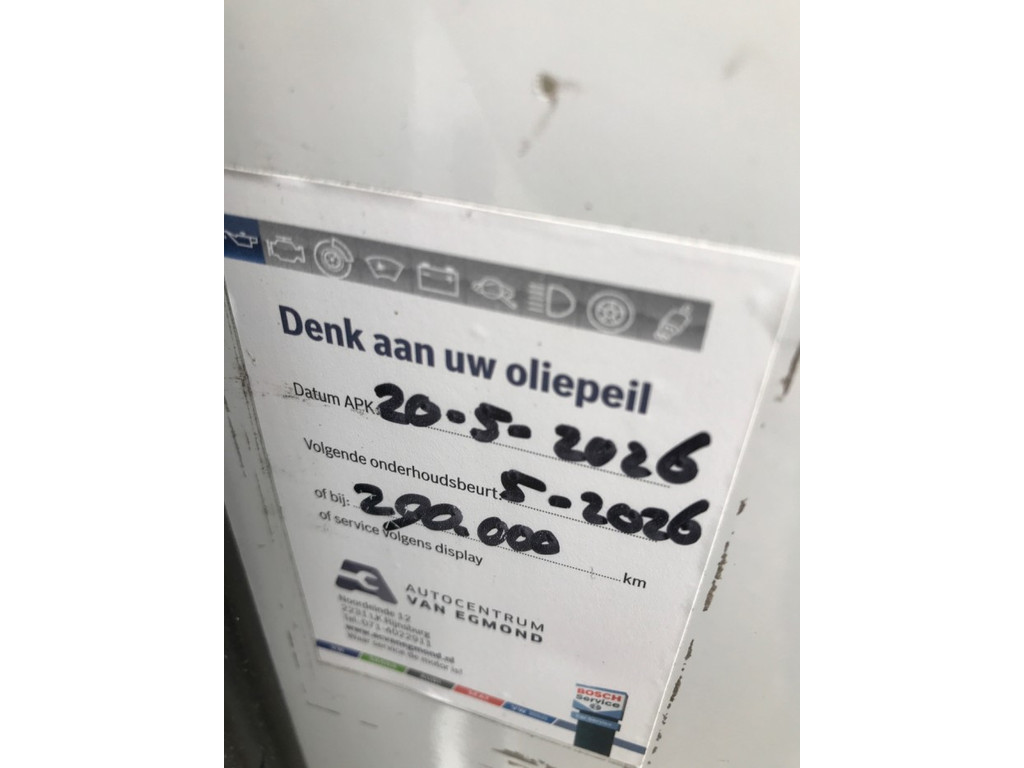 Denk aan uw oliepeil
Datum APK: 20-5-2026
Volgende onderhoudsbeurt: 5-2026
of bij: 290.000 km
of service volgens display
AUTOCENTRUM
VAN EGMOND
Noordeinde 12
2231 LK Rijnsburg
Tel. 071-4022911
www.acvanegmond.nl
Waar service de motor is!
BOSCH
Service